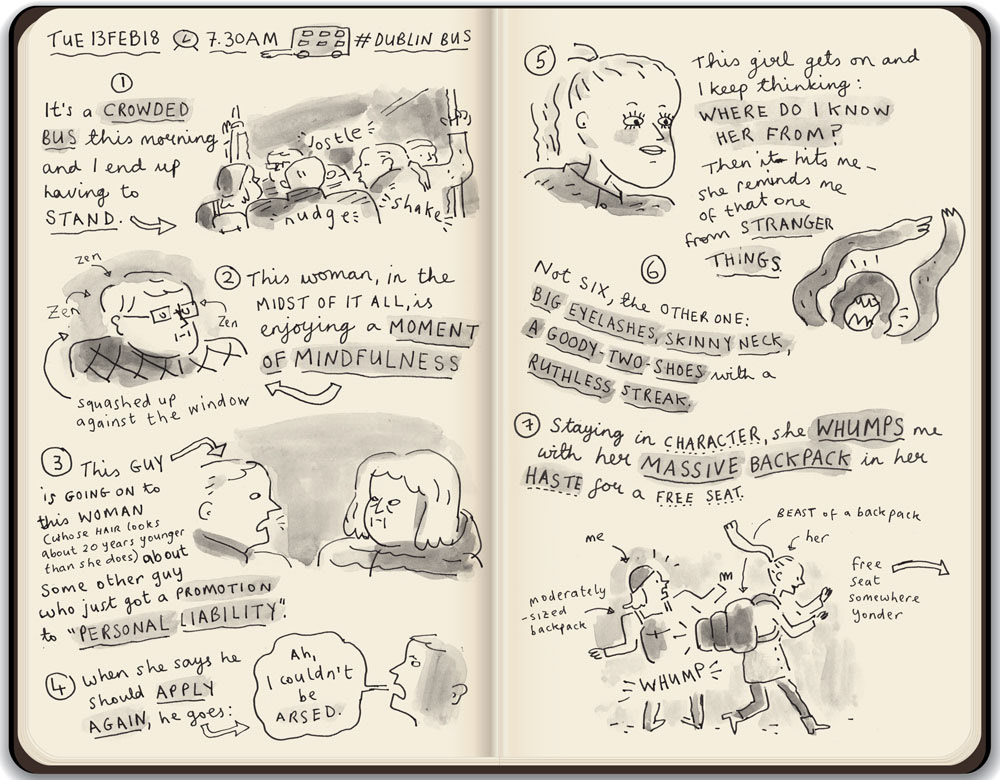 TUE 13FEB18 7.30AM #DUBLIN BUS
1
It's a CROWDED
BUS this morning
and I end up
having to
STAND.
Jostle
nudge
shake
zen
Zen
Zen
2 This woman, in the
MIDST OF IT ALL, is
enjoying a MOMENT
OF MINDFULNESS
squashed up
against the window
3 This GUY
is GOING ON to
this WOMAN
(whose HAIR looks
about 20 years younger
than she does) about
Some other guy
who just got a PROMOTION
to "PERSONAL LIABILITY".
4 when she says he
should APPLY
AGAIN, he goes:
Ah,
I couldn't
be
ARSED.
5
This girl gets on and
I keep thinking:
WHERE DO I KNOW
HER FROM?
Then it hits me –
she reminds me
of that one
from STRANGER
THINGS.
6
Not SIX, the OTHER ONE:
BIG EYELASHES, SKINNY NECK,
A GOODY-TWO-SHOES with a
RUTHLESS STREAK.
7 Staying in CHARACTER, she WHUMPS me
with her MASSIVE BACKPACK in her
HASTE for a FREE SEAT.
BEAST of a backpack
me
her
moderately
-sized
backpack
free
seat
somewhere
yonder
WHUMP